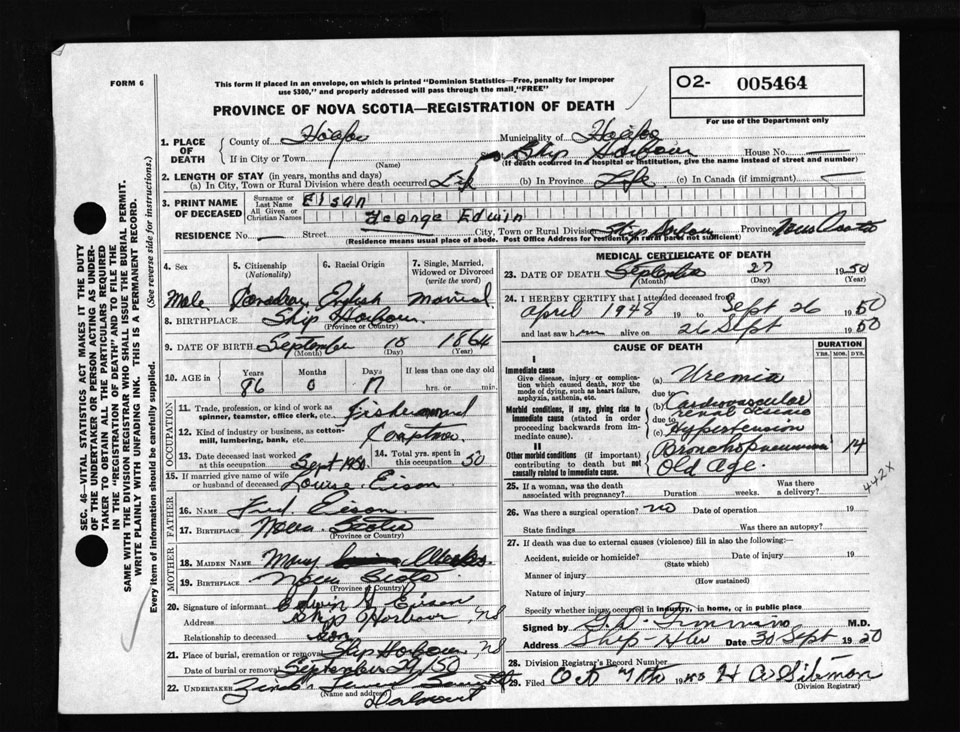 FORM 6
This form if placed in an envelope, on which is printed "Dominion Statistics—Free, penalty for improper
use $300," and properly addressed will pass through the mail, "FREE"
O2- 005464
For use of the Department only
PROVINCE OF NOVA SCOTIA—REGISTRATION OF DEATH
SEC. 46—VITAL STATISTICS ACT MAKES IT THE DUTY
OF THE UNDERTAKER OR PERSON ACTING AS UNDER-
TAKER TO OBTAIN ALL THE PARTICULARS REQUIRED
IN THE "REGISTRATION OF DEATH" AND TO FILE THE
SAME WITH THE DIVISION REGISTRAR WHO SHALL ISSUE THE BURIAL PERMIT.
WRITE PLAINLY WITH UNFADING INK. THIS IS A PERMANENT RECORD.
Every item of information should be carefully supplied. (See reverse side for instructions.)
1. PLACE OF DEATH
County of Halifax Municipality of Halifax
If in City or Town Ship Harbour House No.
(Name) (If death occurred in a hospital or institution, give the name instead of street and number)
2. LENGTH OF STAY (in years, months and days)
(a) In City, Town or Rural Division where death occurred Life (b) In Province Life (c) In Canada (if immigrant)
3. PRINT NAME OF DECEASED
Surname or Last Name Eisan
All Given or Christian Names George Edwin
RESIDENCE No. Street City, Town or Rural Division Ship Harbour Province Nova Scotia
(Residence means usual place of abode. Post Office Address for residents in rural parts not sufficient)
4. Sex 5. Citizenship (Nationality) 6. Racial Origin 7. Single, Married, Widowed or Divorced (write the word)
Male Canadian English Married
8. BIRTHPLACE Ship Harbour
(Province or Country)
9. DATE OF BIRTH September 10 1864
(Month) (Day) (Year)
10. AGE in Years Months Days If less than one day old
86 0 17 hrs. or min.
OCCUPATION
11. Trade, profession, or kind of work as spinner, teamster, office clerk, etc. Fisherman
12. Kind of industry or business, as cotton-mill, lumbering, bank, etc.
13. Date deceased last worked at this occupation Sept 1950 14. Total yrs. spent in this occupation 50
15. If married give name of wife or husband of deceased Louise Eisan
FATHER
16. Name Fred Eisan
17. Birthplace Nova Scotia
(Province or Country)
MOTHER
18. MAIDEN NAME Mary
19. BIRTHPLACE Nova Scotia
(Province or Country)
20. Signature of informant Edwin G Eisan
Address Ship Harbour NS
Relationship to deceased son
21. Place of burial, cremation or removal Ship Harbour NS
Date of burial or removal September 29/50
22. UNDERTAKER
(Name and address)
MEDICAL CERTIFICATE OF DEATH
23. DATE OF DEATH September 27 1950
(Month) (Day) (Year)
24. I HEREBY CERTIFY that I attended deceased from
April 1948 19 to Sept 26 1950
and last saw him alive on 26 Sept 1950
CAUSE OF DEATH DURATION
YRS. MOS. DYS.
I
Immediate cause
Give disease, injury or complication which caused death, NOT the mode of dying, such as heart failure, asphyxia, asthenia, etc.
(a) Uremia
due to
Morbid conditions, if any, giving rise to immediate cause (stated in order proceeding backwards from immediate cause).
(b) Cardiovascular renal disease
due to
(c) Hypertension
II
Other morbid conditions (if important) contributing to death but not causally related to immediate cause.
Bronchopneumonia 14
Old Age.
442X
25. If a woman, was the death associated with pregnancy? Duration weeks. Was there a delivery?
26. Was there a surgical operation? no Date of operation 19
State findings Was there an autopsy?
27. If death was due to external causes (violence) fill in also the following:—
Accident, suicide or homicide? Date of injury 19
(State which)
Manner of injury
(How sustained)
Nature of injury
Specify whether injury occurred in industry, in home, or in public place
Signed by M.D.
Address Ship Hbr Date 30 Sept 1950
28. Division Registrar's Record Number
29. Filed Oct 7th 19
(Division Registrar)